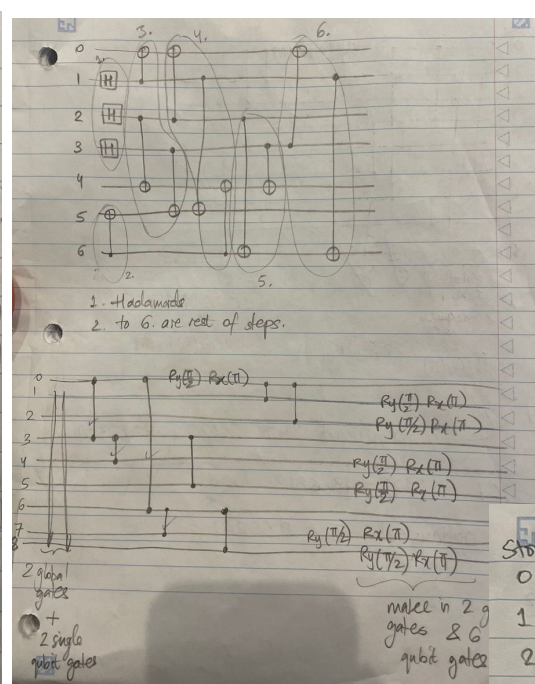 3. 4. 6.
0
1 H
2 H
3 H
4
5
6
2. 5.
1. Hadamads
2. to 6. are rest of steps.
0 Ry(π/2) Rx(π)
1 Ry(π/2) Rx(π)
2 Ry(π/2) Rx(π)
3
4 Ry(π/2) Rx(π)
5 Ry(π/2) Rx(π)
6
7 Ry(π/2) Rx(π)
8 Ry(π/2) Rx(π)
2 global
gates
+
2 single
qubit gates
make in 2 g
gates & 6
qubit gates
0
1
2